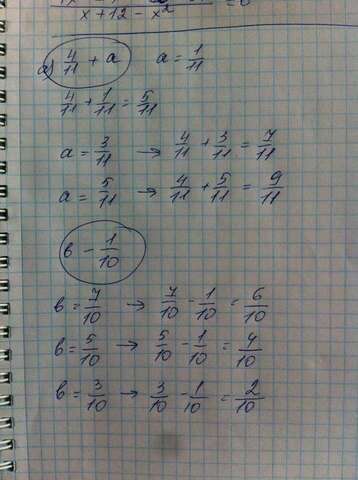 x + 12 - x² = 0
а) 4/11 + a   a = 1/11
4/11 + 1/11 = 5/11
a = 3/11 → 4/11 + 3/11 = 7/11
a = 5/11 → 4/11 + 5/11 = 9/11
в - 1/10
в = 7/10 → 7/10 - 1/10 = 6/10
в = 5/10 → 5/10 - 1/10 = 4/10
в = 3/10 → 3/10 - 1/10 = 2/10